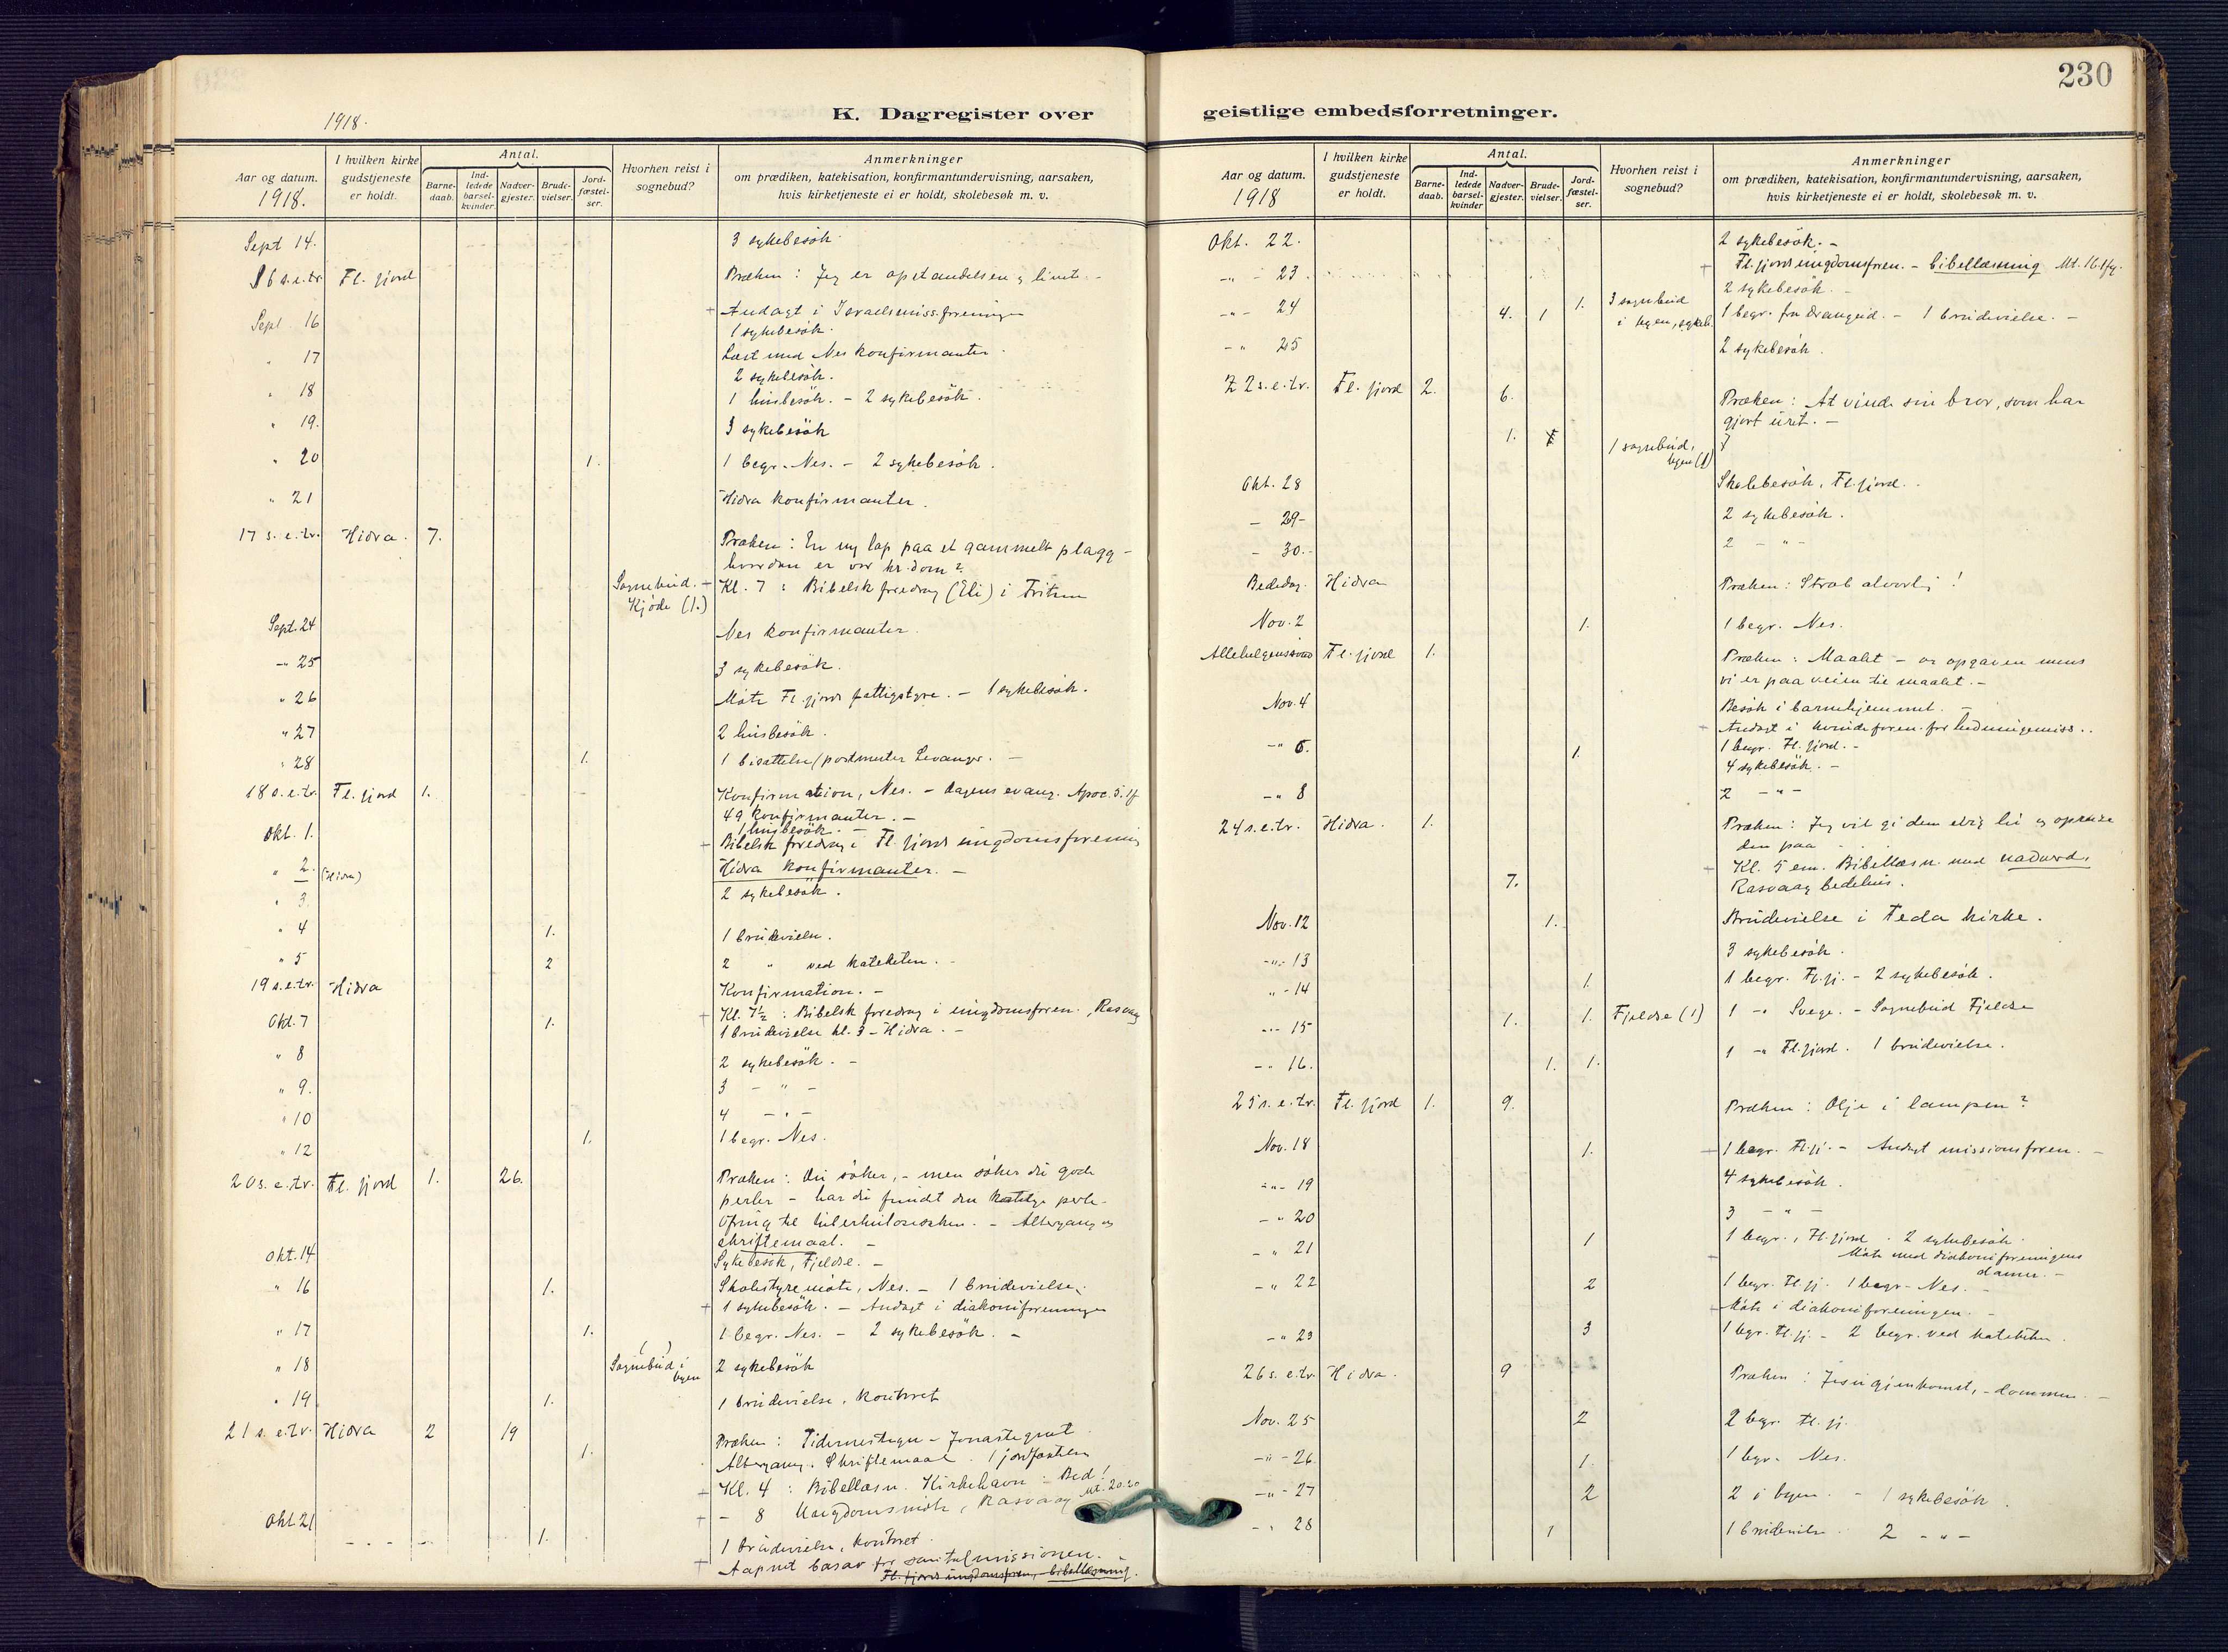 230
K. Dagregister over
geistlige embedsforretninger.
1918.
Aar og datum.
1918.
I hvilken kirke
gudstjeneste
er holdt.
Antal.
Barne-
daab.
Ind-
ledede
barsel-
kvinder.
Nadver-
gjester.
Brude-
vielser.
Jord-
fæstel-
ser.
Hvorhen reist i
sognebud?
Anmerkninger
om prædiken, katekisation, konfirmantundervisning, aarsaken,
hvis kirketjeneste ei er holdt, skolebesøk m. v.
Sept 14. 3 sykebesök.
16 s.e.tr. Fl. fjord Præken: Jeg er opstandelsen og livet -
Sept 16 + Andagt i Israelsmissforeningen
1 sykebesök.
" 17 Læst med Nes konfirmanter.
2 sykebesök.
" 18 1 husbesök. - 2 sykebesök.
" 19. 3 sykebesök
" 20 1. 1 begr. Nes. - 2 sykebesök.
" 21 Hidra konfirmanter.
17 s.e.tr. Hidra. 7. Præken: En ny lap paa et gammelt plagg -
hvordan er vor kr.dom?
Sognebud. + Kl. 7 : Bibelsk foredrag (Eli) i
Kjøde (1.)
Sept. 24 Nes konfirmanter.
-" 25 3 sykebesök.
" 26 Møte Fl. fjords fattigstyre. - 1 sykebesök.
" 27 2 husbesök.
" 28 1. 1 bisættelse, postmester Levanger. -
18 s.e.tr. Fl. fjord 1. Konfirmation, Nes. - dagens evang. Apoc. 5.1f
49 konfirmanter. -
Okt. 1. 1 husbesök. -
+ Bibelsk foredrag i Fl. fjords ungdomsforening
" 2. (Hidra) Hidra konfirmanter. -
" 3. 2 sykebesök.
" 4 1. 1 brudevielse.
" 5 2 2 " ved kateketen. -
19 s.e.tr. Hidra Konfirmation. -
+ Kl. 7½ : Bibelsk foredrag i ungdomsforen., Rasvaag
Okt. 7 1. 1 brudevielse kl. 3 - Hidra. -
" 8 2 sykebesök. -
" 9. 3 - " -
" 10 4 - " -
" 12 1. 1 begr. Nes.
20 s.e.tr. Fl. fjord 1. 26. Præken: Du söker, - men söker du gode
perler - har du fundet den kostelige perle -
Ofring til tuberkulosesaken. - Altergang og
skriftemaal. -
Okt. 14 Sykebesök, Fjeldse. -
" 16 1. Skolestyremöte, Nes. - 1 brudevielse.
+ 1 sykebesök. - Andagt i diakoniforeningen
" 17 1. 1 begr. Nes. - 2 sykebesök. -
" 18 Sognebud i byen 2 sykebesök
" 19 1. 1 brudevielse, kontoret
21 s.e.tr. Hidra 2 19 Præken: Tidernes tegn - Jonastegnet
1. Altergang. Skriftemaal. 1 jordfæstelse
+ Kl. 4 : Bibellæsn. Kirkehavn : Bed!
+ - 8 Ungdomsmöte, Rasvaag Mt. 20.20
Okt. 21 1. 1 brudevielse, kontoret.
+ Aapnet basar for santalmissionen. -
Fl. fjords ungdomsforen, bibellæsning.
Aar og datum.
1918
I hvilken kirke
gudstjeneste
er holdt.
Antal.
Barne-
daab.
Ind-
ledede
barsel-
kvinder
Nadver-
gjester.
Brude-
vielser.
Jord-
fæstel-
ser.
Hvorhen reist i
sognebud?
Anmerkninger
om prædiken, katekisation, konfirmantundervisning, aarsaken,
hvis kirketjeneste ei er holdt, skolebesøk m. v.
Okt. 22. 2 sykebesök. -
+ Fl. fjords ungdomsforen. - bibellæsning Mt. 16.1fg.
-" - 23. 2 sykebesök. -
-" - 24 4. 1 1. 3 sognebud i byen, sykeh. 1 begr. fra Drangeid. - 1 brudevielse. -
- " 25 2 sykebesök.
22 s.e.tr. Fl. fjord 2. 6. Præken: At vinde sin bror, som har
gjort uret. -
1. 1 sognebud, byen (1)
Okt. 28 Skolebesök, Fl. fjord.
- 29 - 2 sykebesök.
- 30. - 2 - " -
Bededag. Hidra Præken: Strab alvorlig!
Nov. 2 1. 1 begr. Nes.
Allehelgenssöndag Fl. fjord 1. Præken: Maalet - og opgaven mens
vi er paa veien til maalet. -
Nov. 4 Besök i barnehjemmet. -
+ Andagt i kvindeforen. for hedningemiss..
-" 6. 1. 1 begr. Fl. fjord. -
4 sykebesök. -
-" 8 2 - " -
24 s.e.tr. Hidra. 1. Præken: Jeg vil gi dem evig liv og opreise
den paa
+ Kl. 5 em. Bibellæsn. med nadverd.
7. Rasvaag bedehus.
Nov. 12 1. Brudevielse i Feda kirke.
-"- 13 3 sykebesök.
" - 14 1. 1 begr. Fl.fj. - 2 sykebesök.
-"- 15 1. 1. Fjeldse (1) 1 -" Svege. - Sognebud Fjeldse
-" 16. 1. 1. 1 -" Fl. fjord. 1 brudevielse.
25 s.e.tr. Fl. fjord 1. 9. Præken: Olje i lampen?
Nov. 18 1. + 1 begr. Fl.fj. - Andagt missionsforen. -
-"- 19 4 sykebesök.
- " 20 3 - " -
- " 21 1 1 begr., Fl. fjord. 2 sykebesök.
+ Möte med diakoniforeningens
damer. -
- " 22 2 1 begr. Fl.fj. 1 begr. Nes. -
+ Möte i diakoniforeningen. -
- " 23 3 1 begr. Fl.fj. - 2 begr. ved kateketen.
26 s.e.tr. Hidra. 9 Præken: Jesu gjenkomst, - dommen. -
Nov. 25 2 2 begr. Fl. fj.
-" - 26 1. 1 begr. Nes.
-" - 27 2 2 i byen. - 1 sykebesök.
- " 28 1 1 brudevielse. 2 - " -